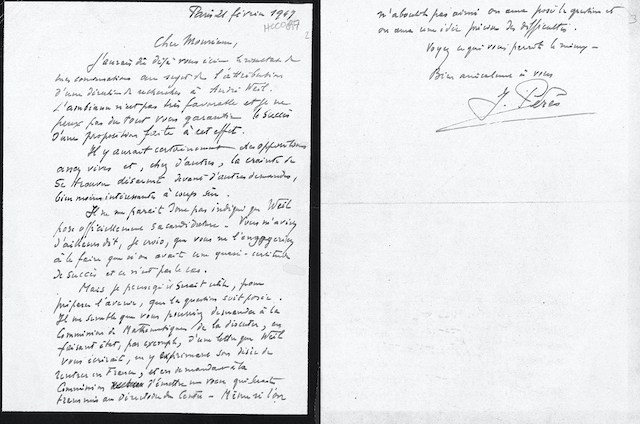 Paris 21 février 1947
HCC087
2
Cher Monsieur,
J'aurais dû déjà vous écrire le résultat de
mes conversations au sujet de l'attribution
d'une direction de recherches à André Weil.
L'ambiance n'est pas très favorable et je ne
peux pas du tout vous garantir le succès
d'une proposition faite à cet effet.
Il y aurait certainement des oppositions
assez vives et, chez d'autres, la crainte de
se trouver désarmé devant d'autres demandes,
bien moins intéressantes à coup sûr.
Il ne me paraît donc pas indiqué que Weil
pose officiellement sa candidature. Vous m'aviez
d'ailleurs dit, je crois, que vous ne l'engageriez
à le faire que si on avait une quasi-certitude
de succès et ce n'est pas le cas.
Mais je pense qu'il serait utile, pour
préparer l'avenir, que la question soit posée.
Il me semble que vous pourriez demander à la
Commission de Mathématiques de la discuter, en
faisant état, par exemple, d'une lettre que Weil
vous écrirait, en y exprimant son désir de
rentrer en France, et en demandant à la
Commission d'émettre un voeu qui serait
transmis au directeur du Centre - Même si l'on
n'aboutit pas ainsi on aura posé la question et
on aura une idée précise des difficultés.
Voyez ce qui vous paraît le mieux -
Bien amicalement à vous
J. Pérès